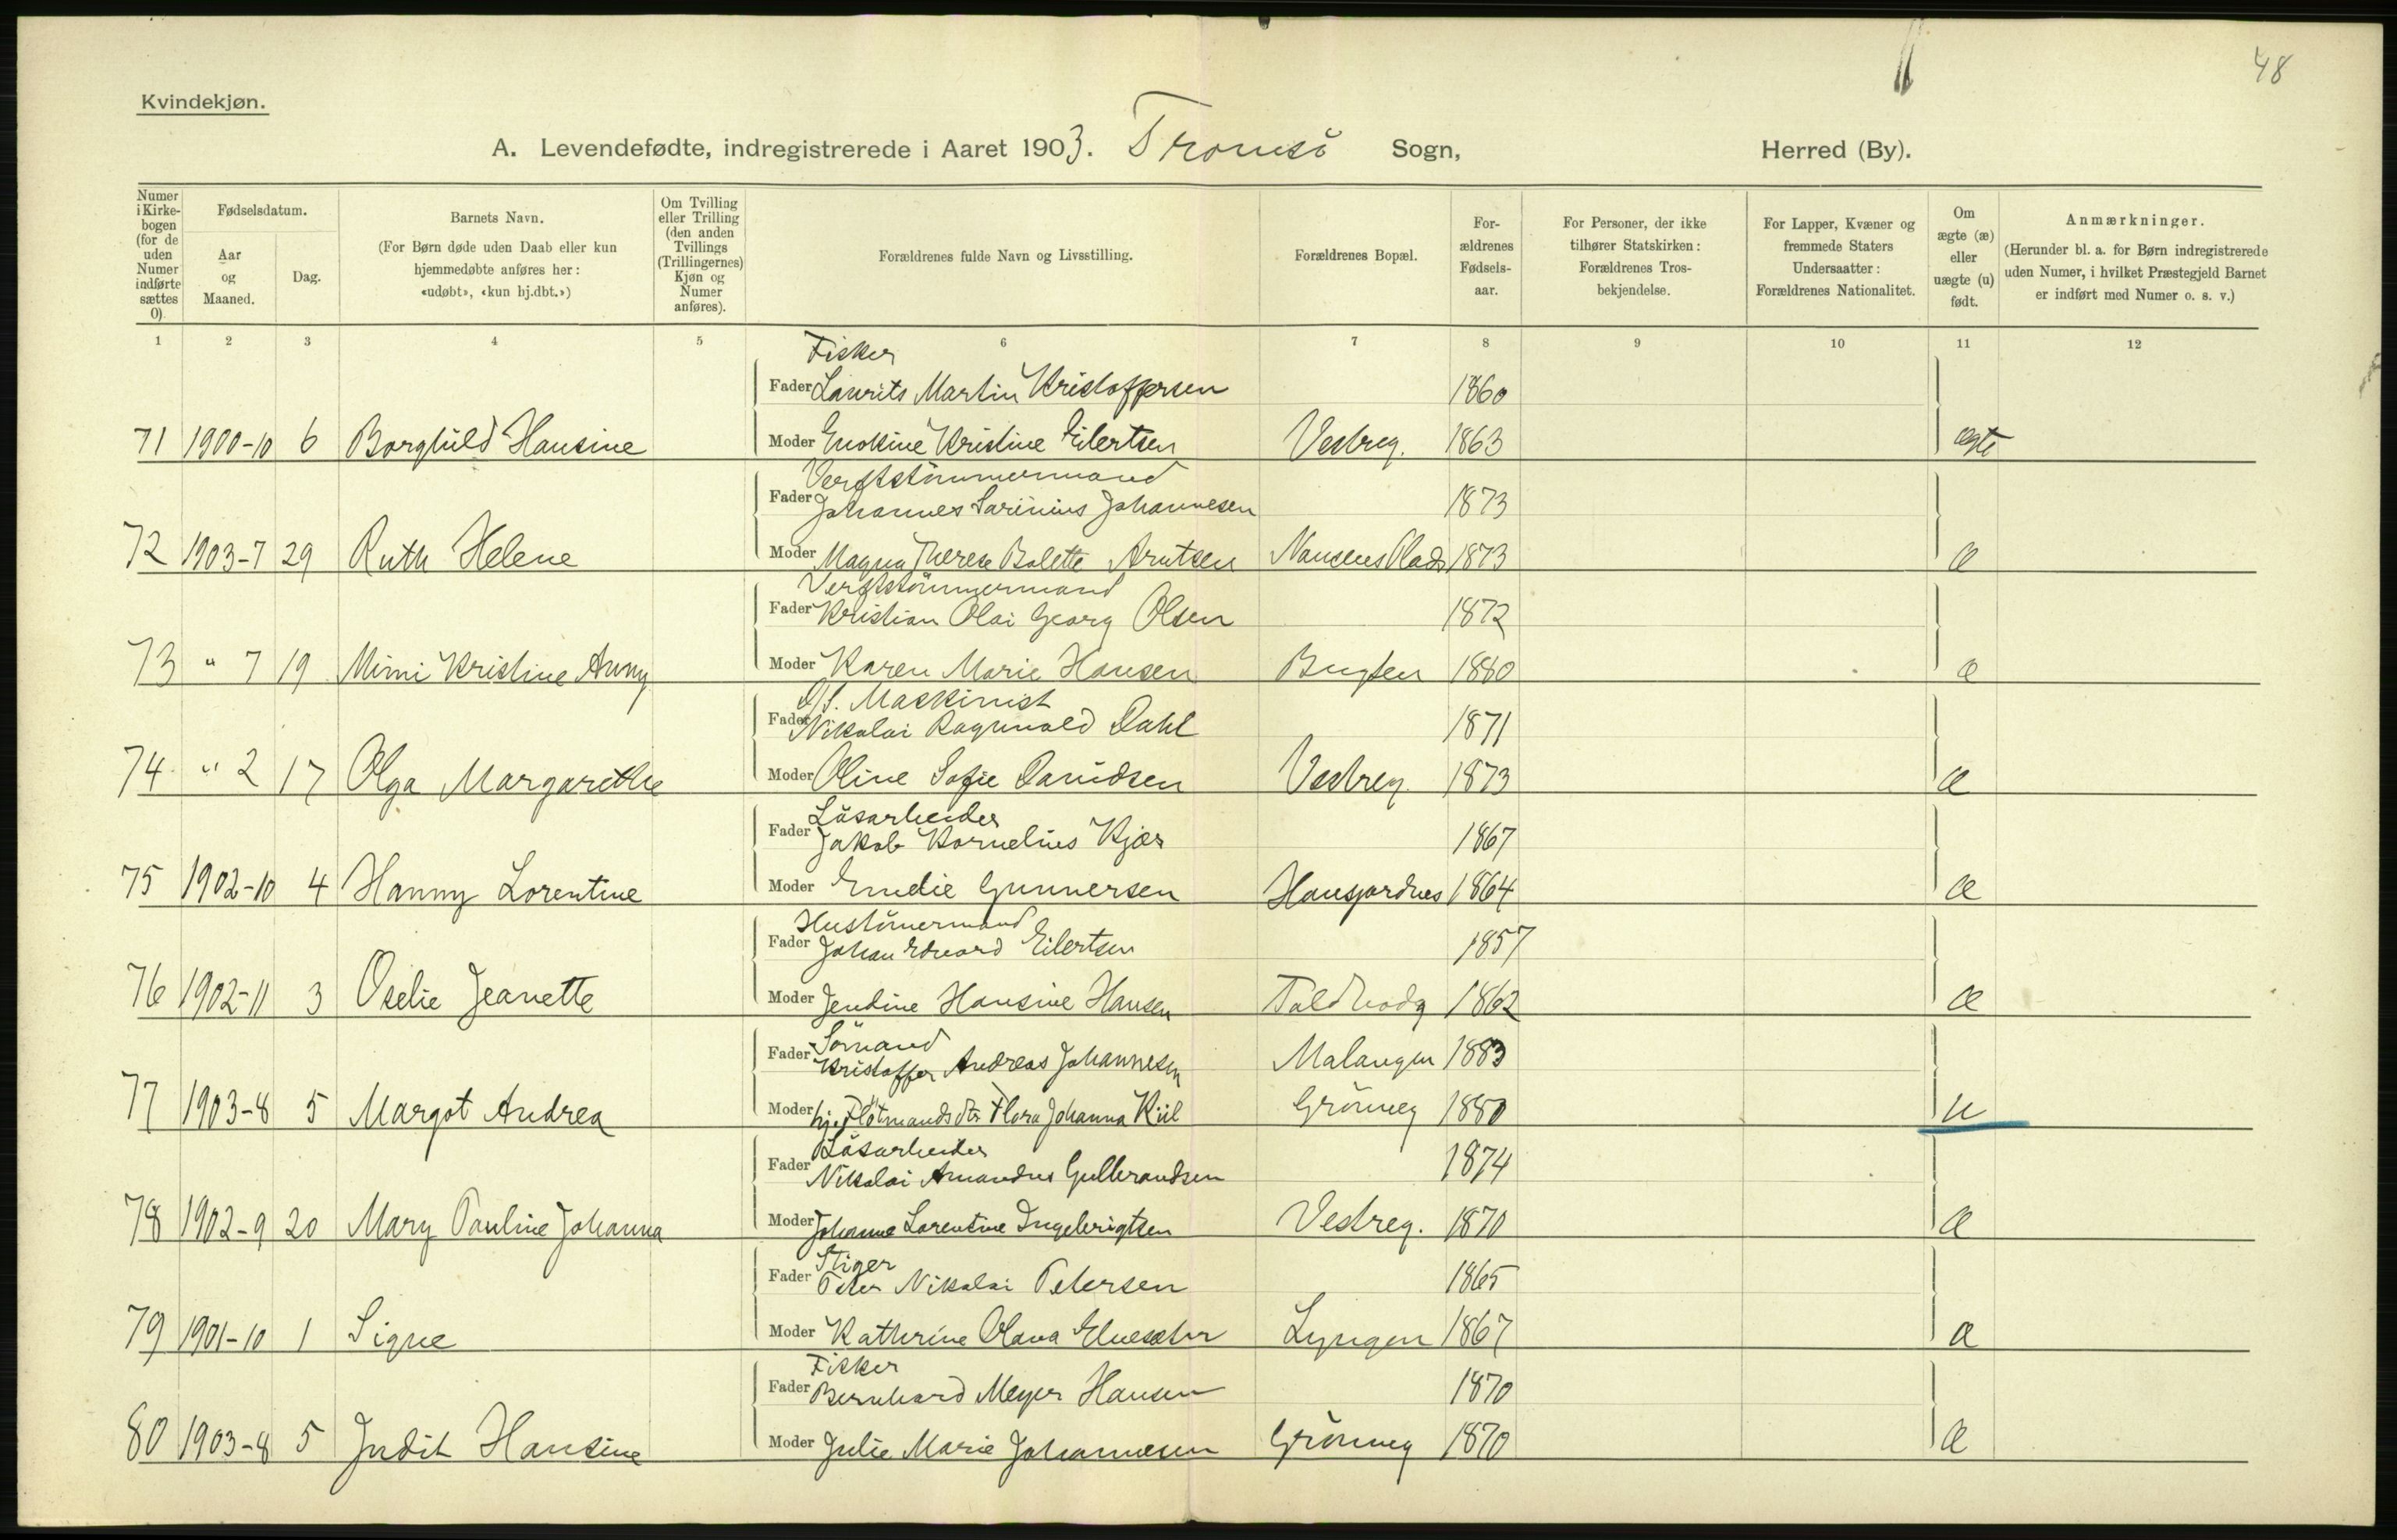 48
Kvindekjøn.
A. Levendefødte, indregistrerede i Aaret 1903. Tromsö Sogn, Herred (By).
Numer i Kirkebogen (for de uden Numer indførte sættes 0).
Fødselsdatum.
Aar og Maaned.
Dag.
Barnets Navn.
(For Børn døde uden Daab eller kun hjemmedøbte anføres her: «udøbt», «kun hj.dbt.»)
Om Tvilling eller Trilling (den anden Tvillings (Trillingernes) Kjøn og Numer anføres).
Forældrenes fulde Navn og Livsstilling.
Forældrenes Bopæl.
Forældrenes Fødselsaar.
For Personer, der ikke tilhører Statskirken: Forældrenes Trosbekjendelse.
For Lapper, Kvæner og fremmede Staters Undersaatter: Forældrenes Nationalitet.
Om ægte (æ) eller uægte (u) født.
Anmærkninger.
(Herunder bl. a. for Børn indregistrerede uden Numer, i hvilket Præstegjeld Barnet er indført med Numer o. s. v.)
1 2 3 4 5 6 7 8 9 10 11 12
Fisker
Fader Laurits Martin Kristoffersen 1860
71 1900-10 6 Borghild Hansine Moder Enokine Kristine Eilertsen Vestreg. 1863 ægte
Verftstömmermand
Fader Johannes Sarinius Johannesen 1873
72 1903-7 29 Ruth Helene Moder Magna Therese Bolette Arntsen Nansens Plads 1873 æ
Verftstömmermand
Fader Kristian Olai Georg Olsen 1872
73 " 7 19 Mimi Kristine Anny Moder Karen Marie Hansen Bugten 1880 æ
D/S. Maskinist
Fader Nikolai Ragnvald Dahl 1871
74 " 2 17 Olga Margarethe Moder Oline Sofie Davidsen Vestreg. 1873 æ
Lösarbeider
Fader Jakob Kornelius Kjær 1867
75 1902-10 4 Hanny Lorentine Moder Emelie Gunnersen Hansjordnes 1864 æ
Hustömermand
Fader Johan Edvard Eilertsen 1857
76 1902-11 3 Oselie Jeanette Moder Jendine Hansine Hansen Toldbodg 1862 æ
Sömand
Fader Kristoffer Andreas Johannesen Malangen 1883
77 1903-8 5 Margot Andrea Moder hj. Flötmandsdtr Flora Johanna Kiil Grönneg 1880 u
Lösarbeider
Fader Nikolai Amandus Gulbrandsen 1874
78 1902-9 20 Mary Pauline Johanna Moder Johanne Lorentine Ingebrigtsen Vestreg. 1870 æ
Stiger
Fader Peter Nikolai Petersen 1865
79 1901-10 1 Signe Moder Kathrine Olava Elvesæter Lyngen 1867 æ
Fisker
Fader Bernhard Meyer Hansen 1870
80 1903-8 5 Judit Hansine Moder Julie Marie Johannesen Grönneg 1870 æ